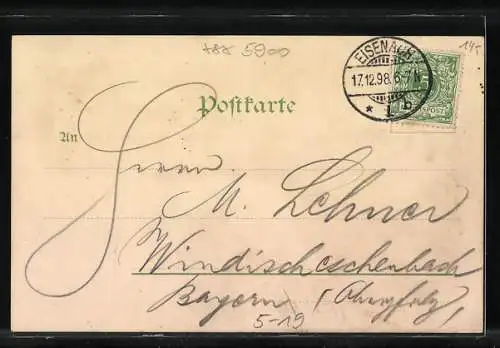 5900
145
EISENACH
17.12.98. 6-7 N
* 1 b
Postkarte
An
Herrn
M. Lehner
Windischeschenbach
Bayern (Oberpfalz,
5-19